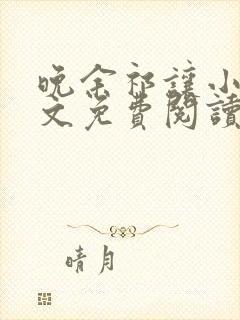 晚余祁讓小
文免費閱讀
晴月